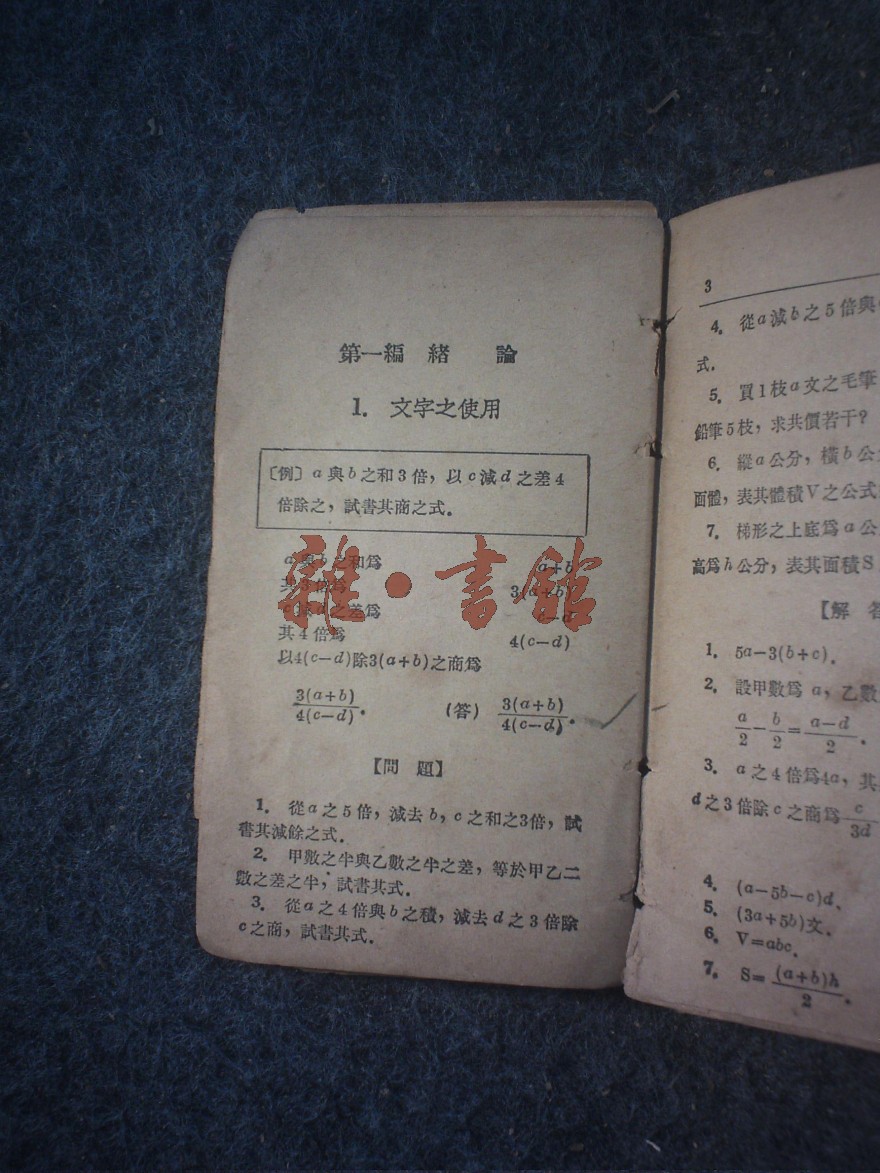 第一編 緒 論
1. 文字之使用
〔例〕 a 與 b 之和 3 倍，以 c 減 d 之差 4
倍除之，試書其商之式．
a 與 b 之和爲 a+b
其 3 倍爲 3(a+b)
c 減 d 之差爲 c−d
其 4 倍爲 4(c−d)
以 4(c−d) 除 3(a+b) 之商爲
3(a+b)/4(c−d)． (答) 3(a+b)/4(c−d)．
【問 題】
1. 從 a 之 5 倍，減去 b，c 之和之 3 倍，試
書其減餘之式．
2. 甲數之半與乙數之半之差，等於甲乙二
數之差之半，試書其式．
3. 從 a 之 4 倍與 b 之積，減去 d 之 3 倍除
c 之商，試書其式．
雜·書館
3
4. 從 a 減 b 之 5 倍與
式．
5. 買 1 枝 a 文之毛筆
鉛筆 5 枝，求共價若干？
6. 縱 a 公分，橫 b 公
面體，表其體積 V 之公式
7. 梯形之上底爲 a 公
高爲 h 公分，表其面積 S
【解 答
1. 5a−3(b+c)．
2. 設甲數爲 a，乙數
a/2−b/2=a−d/2．
3. a 之 4 倍爲 4a，其
d 之 3 倍除 c 之商爲 c/3d
4. (a−5b−c)d．
5. (3a+5b)文．
6. V=abc．
7. S=(a+b)h/2．